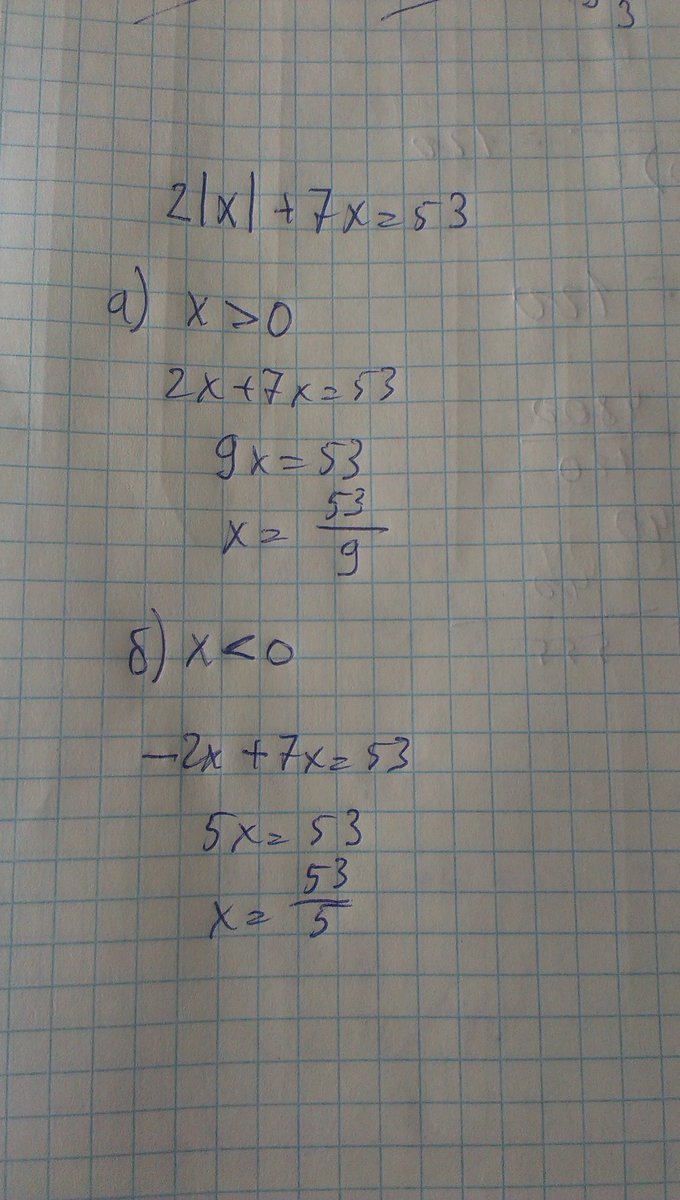 3
2|x| + 7x = 53
а) x > 0
2x + 7x = 53
9x = 53
x = 53/9
б) x < 0
-2x + 7x = 53
5x = 53
x = 53/5